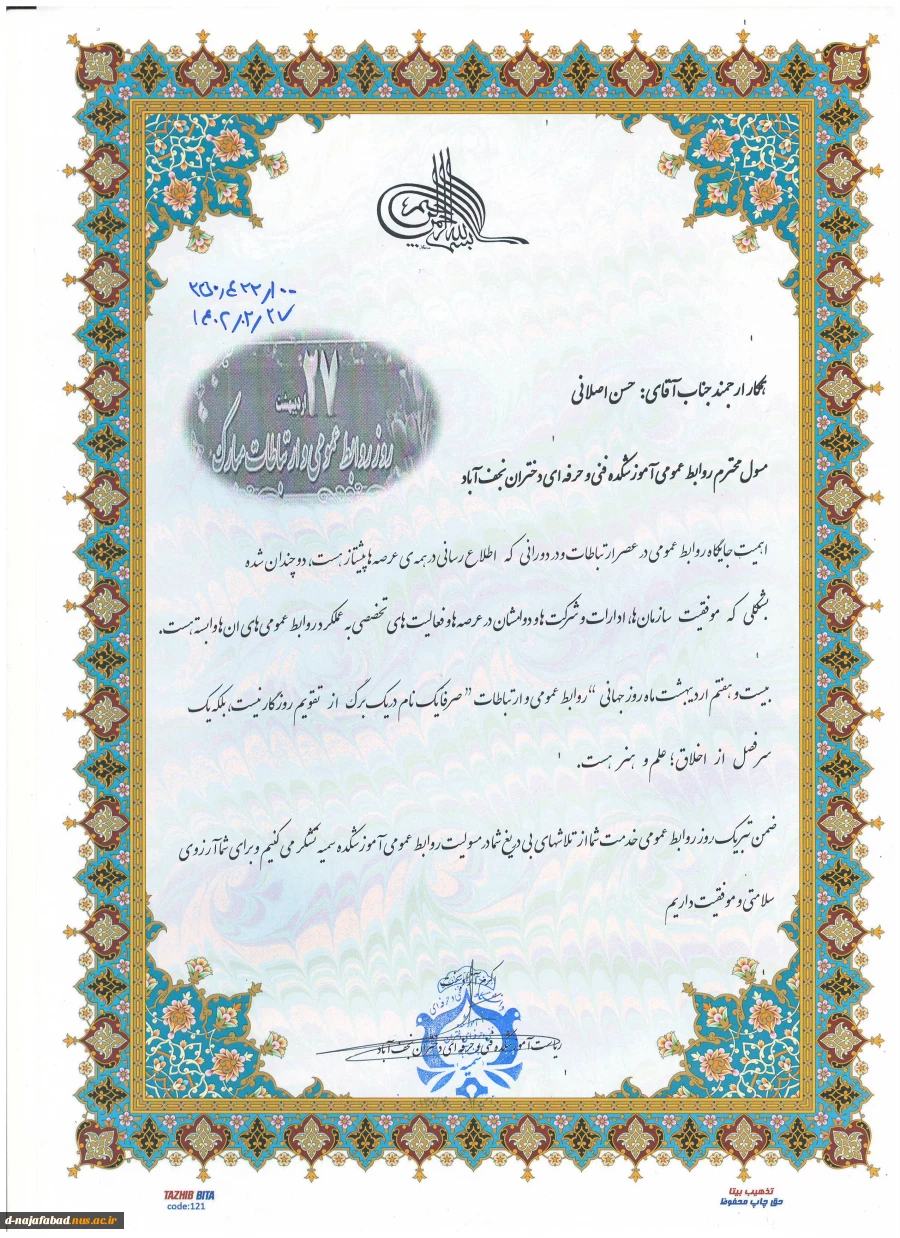 بسم الله الرحمن الرحیم
۱۴۰۲/۰۲/۲۷
۲۷ اردیبهشت
روز روابط عمومی و ارتباطات مبارک
همکار ارجمند جناب آقای: حسن اصلانی
مسول محترم روابط عمومی آموزشکده فنی و حرفه ای دختران نجف آباد
اهمیت جایگاه روابط عمومی در عصر ارتباطات و در دورانی که اطلاع رسانی در همه ی عرصه ها پیشتاز هست، دو چندان شده
بشکلی که موفقیت سازمان ها، ادارات و شرکت ها و دوامشان در عرصه ها و فعالیت های تخصصی به عملکرد روابط عمومی های ان ها وابسته هست.
بیست و هفتم اردیبهشت ماه روز جهانی “روابط عمومی و ارتباطات” صرفا یک نام در یک برگ از تقویم روزگار نیست، بلکه یک
سرفصل از اخلاق؛ علم و هنر هست.
ضمن تبریک روز روابط عمومی خدمت شما از تلاشهای بی دریغ شما در مسولیت روابط عمومی آموزشکده سمیه تشکر می کنیم و برای شما آرزوی
سلامتی و موفقیت داریم
ریاست آموزشکده فنی و حرفه ای دختران نجف آباد
سمیه
TAZHIB BITA
code:121
تذهیب بیتا
حق چاپ محفوظ
d-najafabad.nus.ac.ir